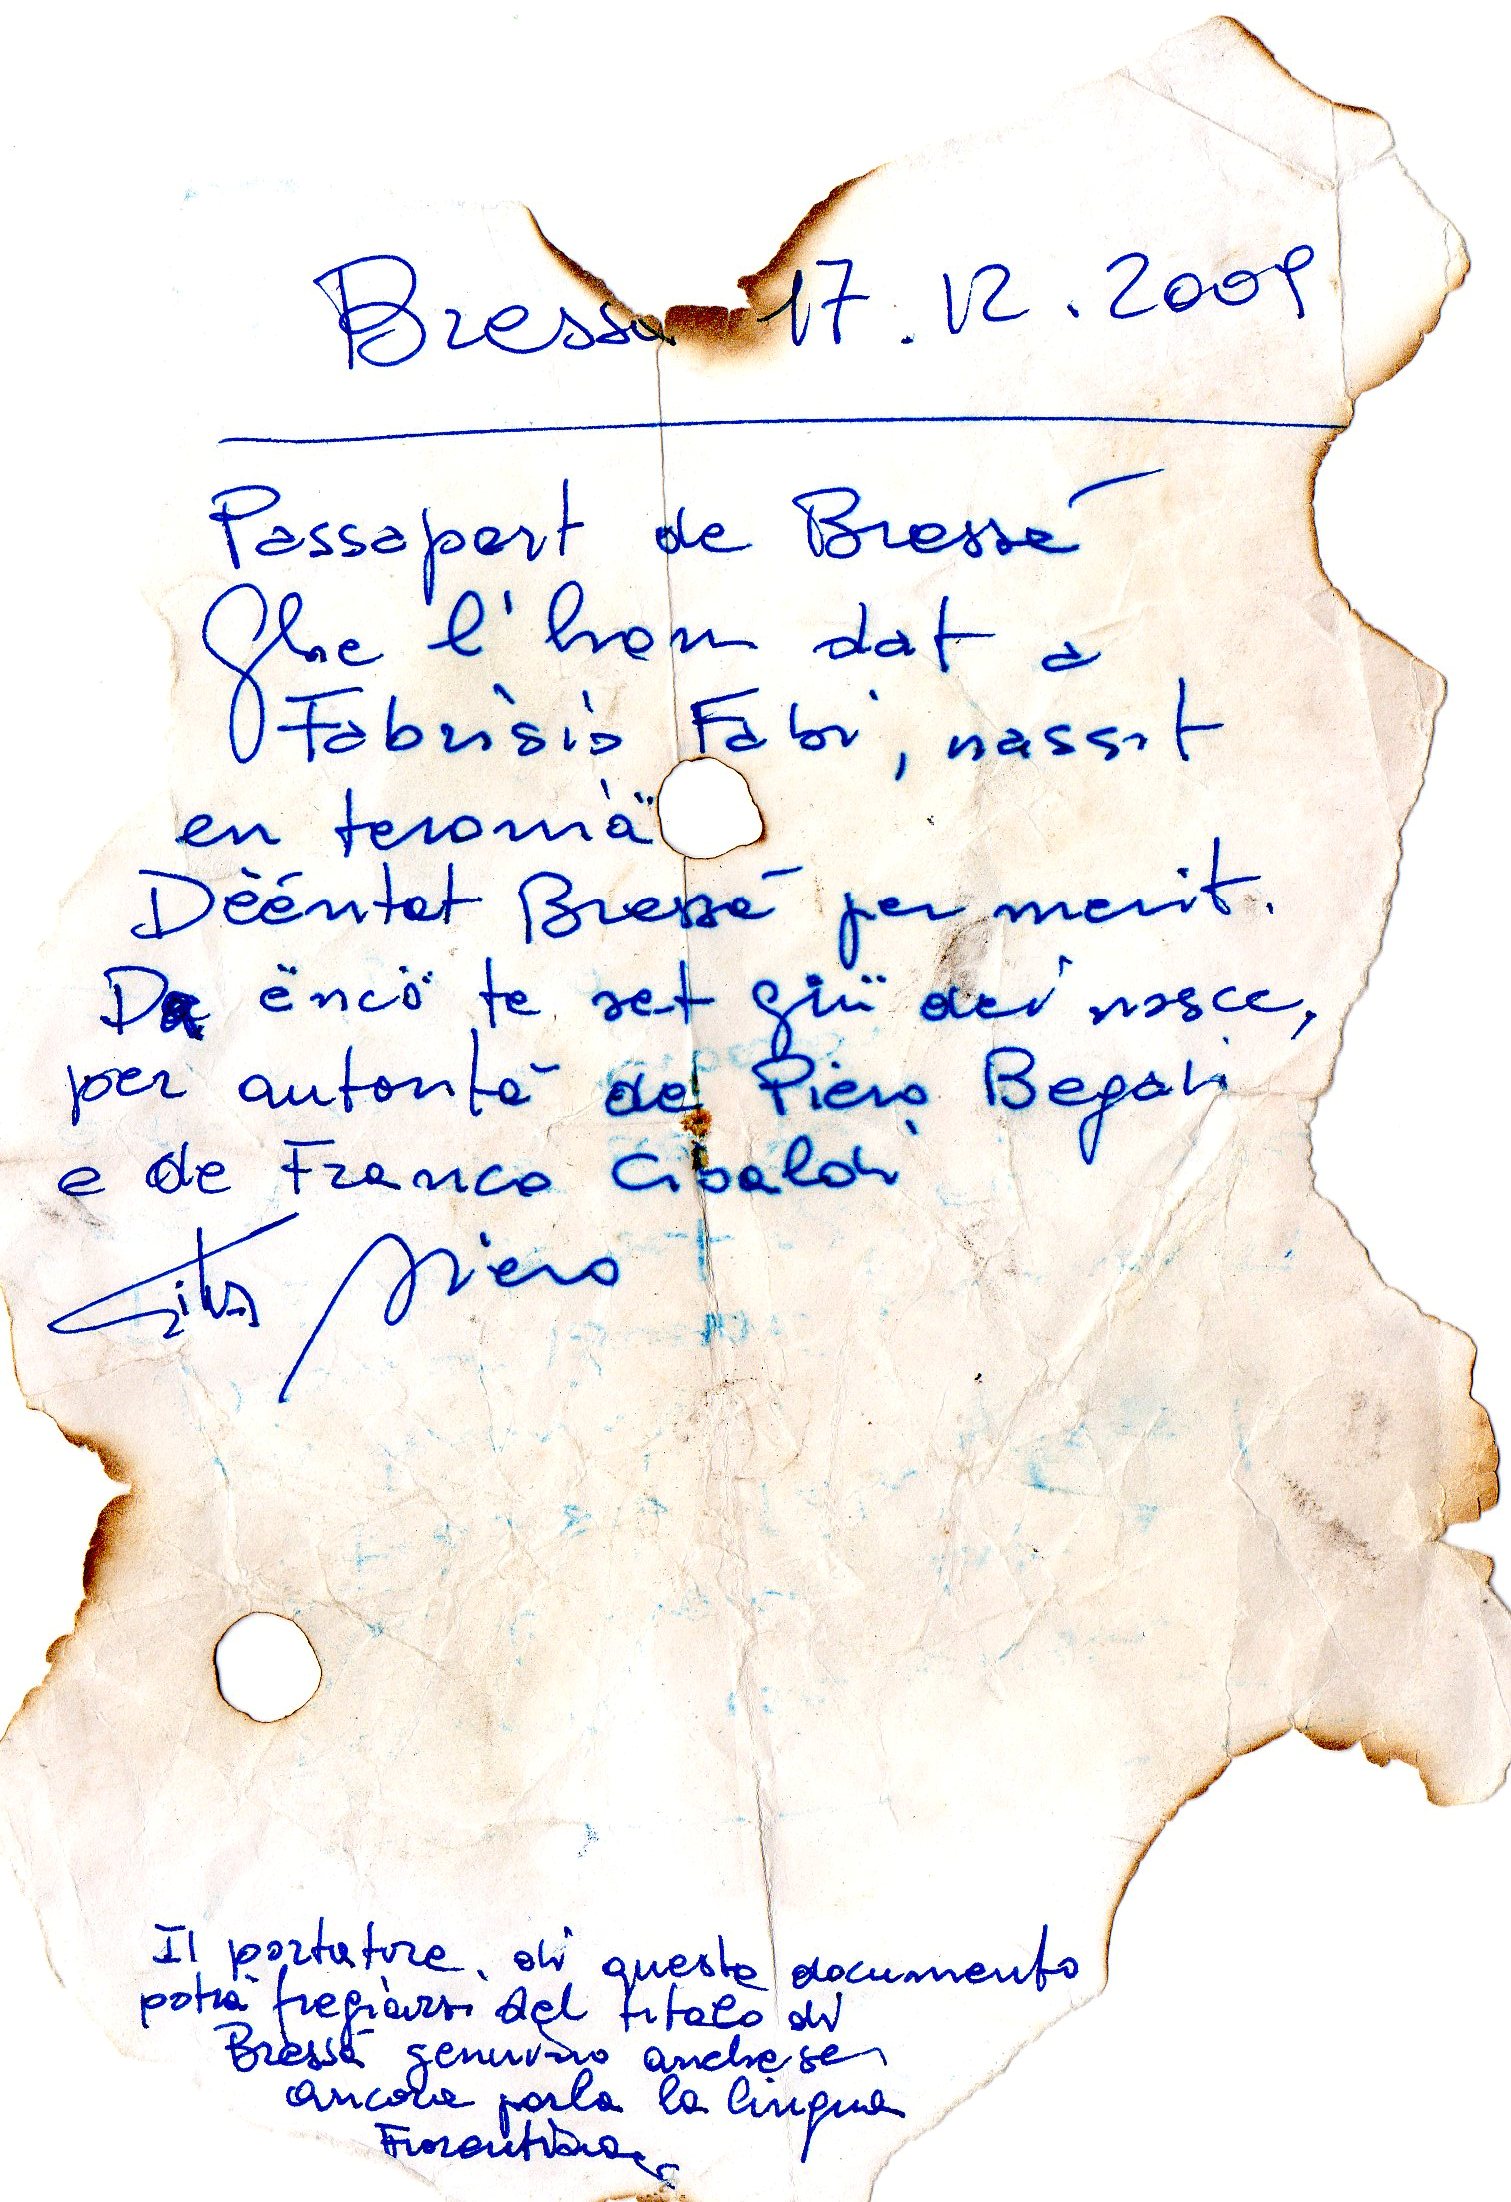 Bressa 17.12.2009
Passaport de Bressá
Ghe l'hom dat a
Fabrìsio Fabi, nassit
en teronia
Dèéntat Bressá per merit.
Da ëncö te set giü dei nosce,
per autorità de Piero Begati
e de Franco Cisaldi
Piero
Il portatore di questo documento
potrà fregiarsi del titolo di
Bressá genuino anche se
ancora parla la lingua
Fiorentina